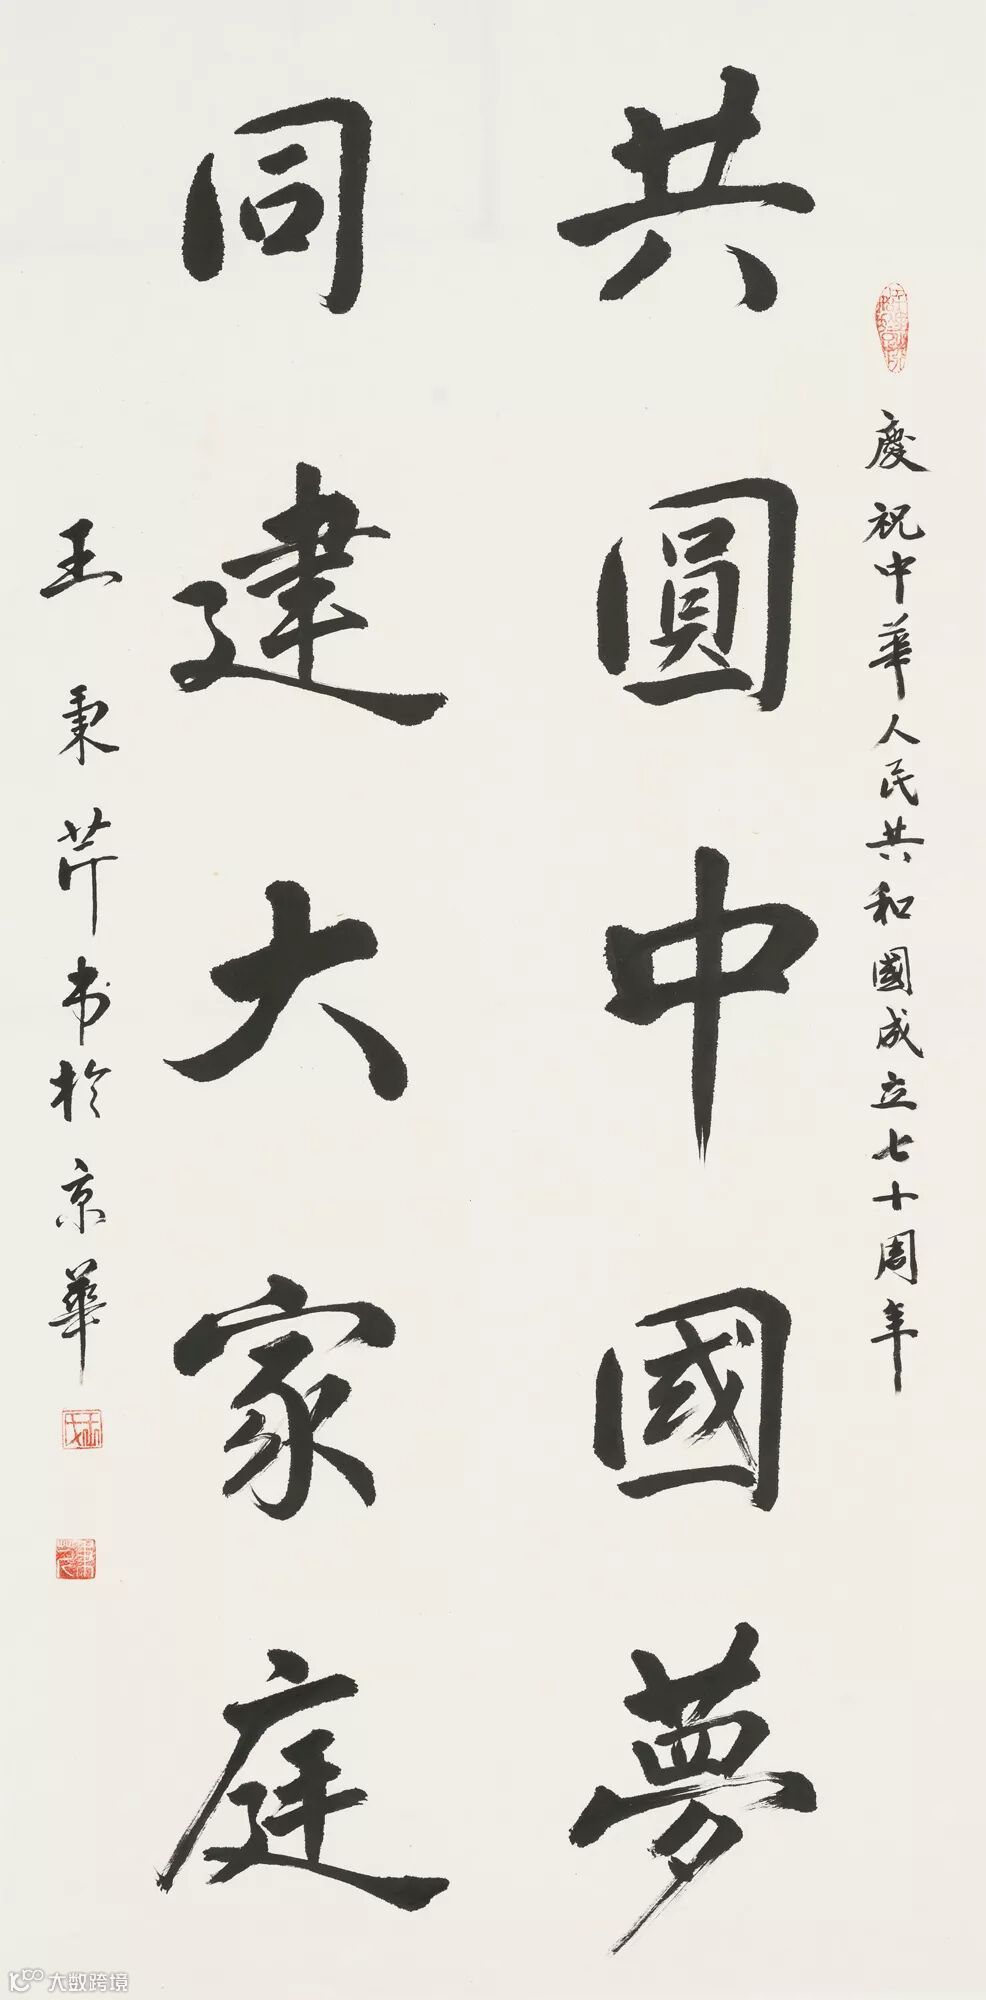 慶祝中華人民共和國成立七十周年
共圓中國夢
同建大家庭
王秉芹书於京華
大数跨境